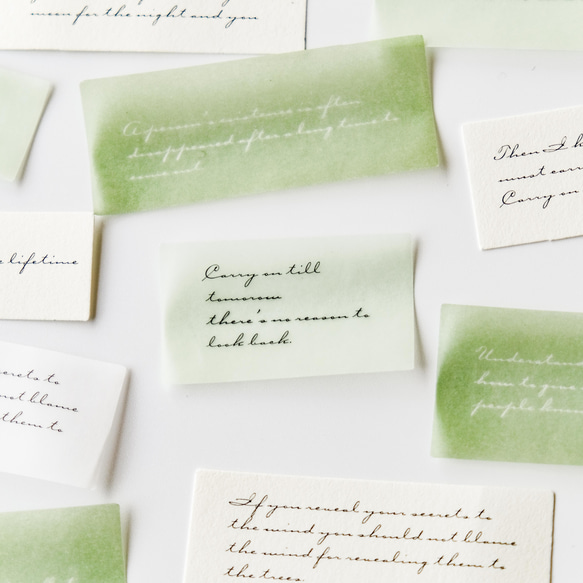 moon for the night and you
A person's existence is often
disappeared after a long time to
Then I k
must carr
Carry on
e lifetime
Carry on till
tomorow
there's no reason to
look back.
crets to
not blame
them to
Understan
how to give
people
If you reveal your secrets to
the wind you should not blame
the wind for revealing them to
the trees.